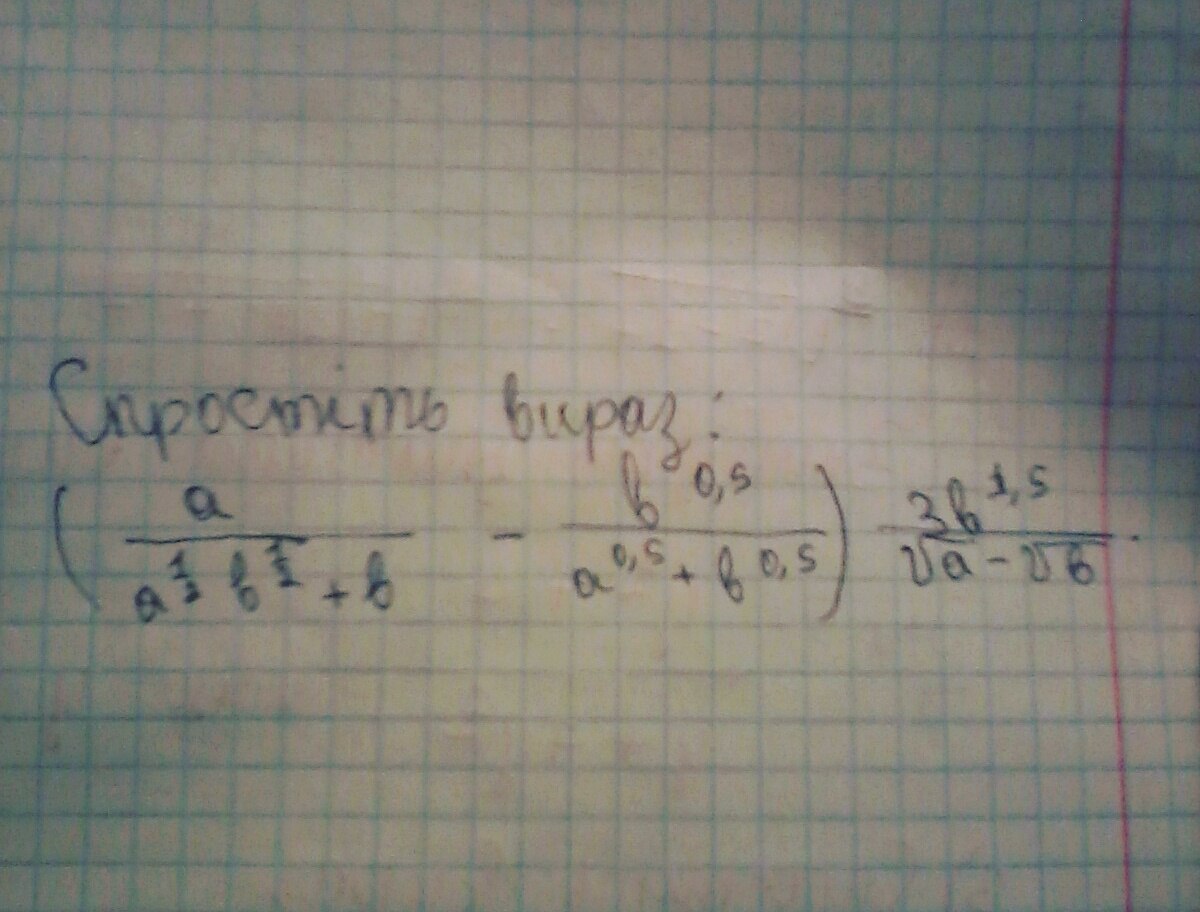 Спростіть вираз:
(a / (a^(1/2) b^(1/2) + b) - b^0,5 / (a^0,5 + b^0,5)) 3b^1,5 / (√a - √b).